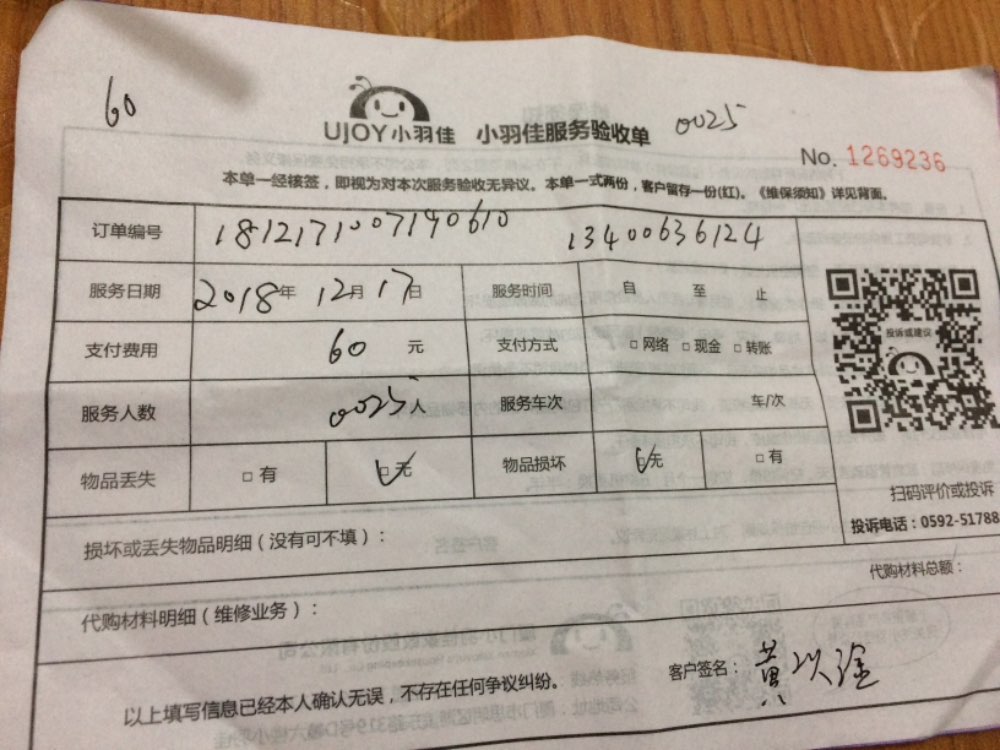 60
UJOY小羽佳 小羽佳服务验收单 0025
No. 1269236
本单一经核签，即视为对本次服务验收无异议。本单一式两份，客户留存一份(红)。《维保须知》详见背面。
订单编号 1812171007190610 13400636124
服务日期 2018年 12月 17日 服务时间 自 至 止
投诉或建议
支付费用 60 元 支付方式 □网络 □现金 □转账
服务人数 0025人 服务车次 车/次
物品丢失 □有 □无 物品损坏 □无 □有
扫码评价或投诉
投诉电话：0592-51788
损坏或丢失物品明细（没有可不填）：
代购材料总额：
代购材料明细（维修业务）：
以上填写信息已经本人确认无误，不存在任何争议纠纷。 客户签名：黄